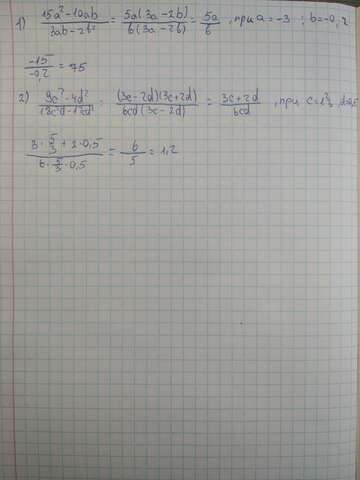 1) (15a² - 10ab)/(3ab - 2b²) = 5a(3a - 2b)/b(3a - 2b) = 5a/b, при a = -3 ; b = -0,2
-15/-0,2 = 75
2) (9c² - 4d²)/(18c²d - 12cd²) = (3c - 2d)(3c + 2d)/6cd(3c - 2d) = (3c + 2d)/6cd, при c = 1⅔, d=0,5
(3·5/3 + 2·0,5)/(6·5/3·0,5) = 6/5 = 1,2